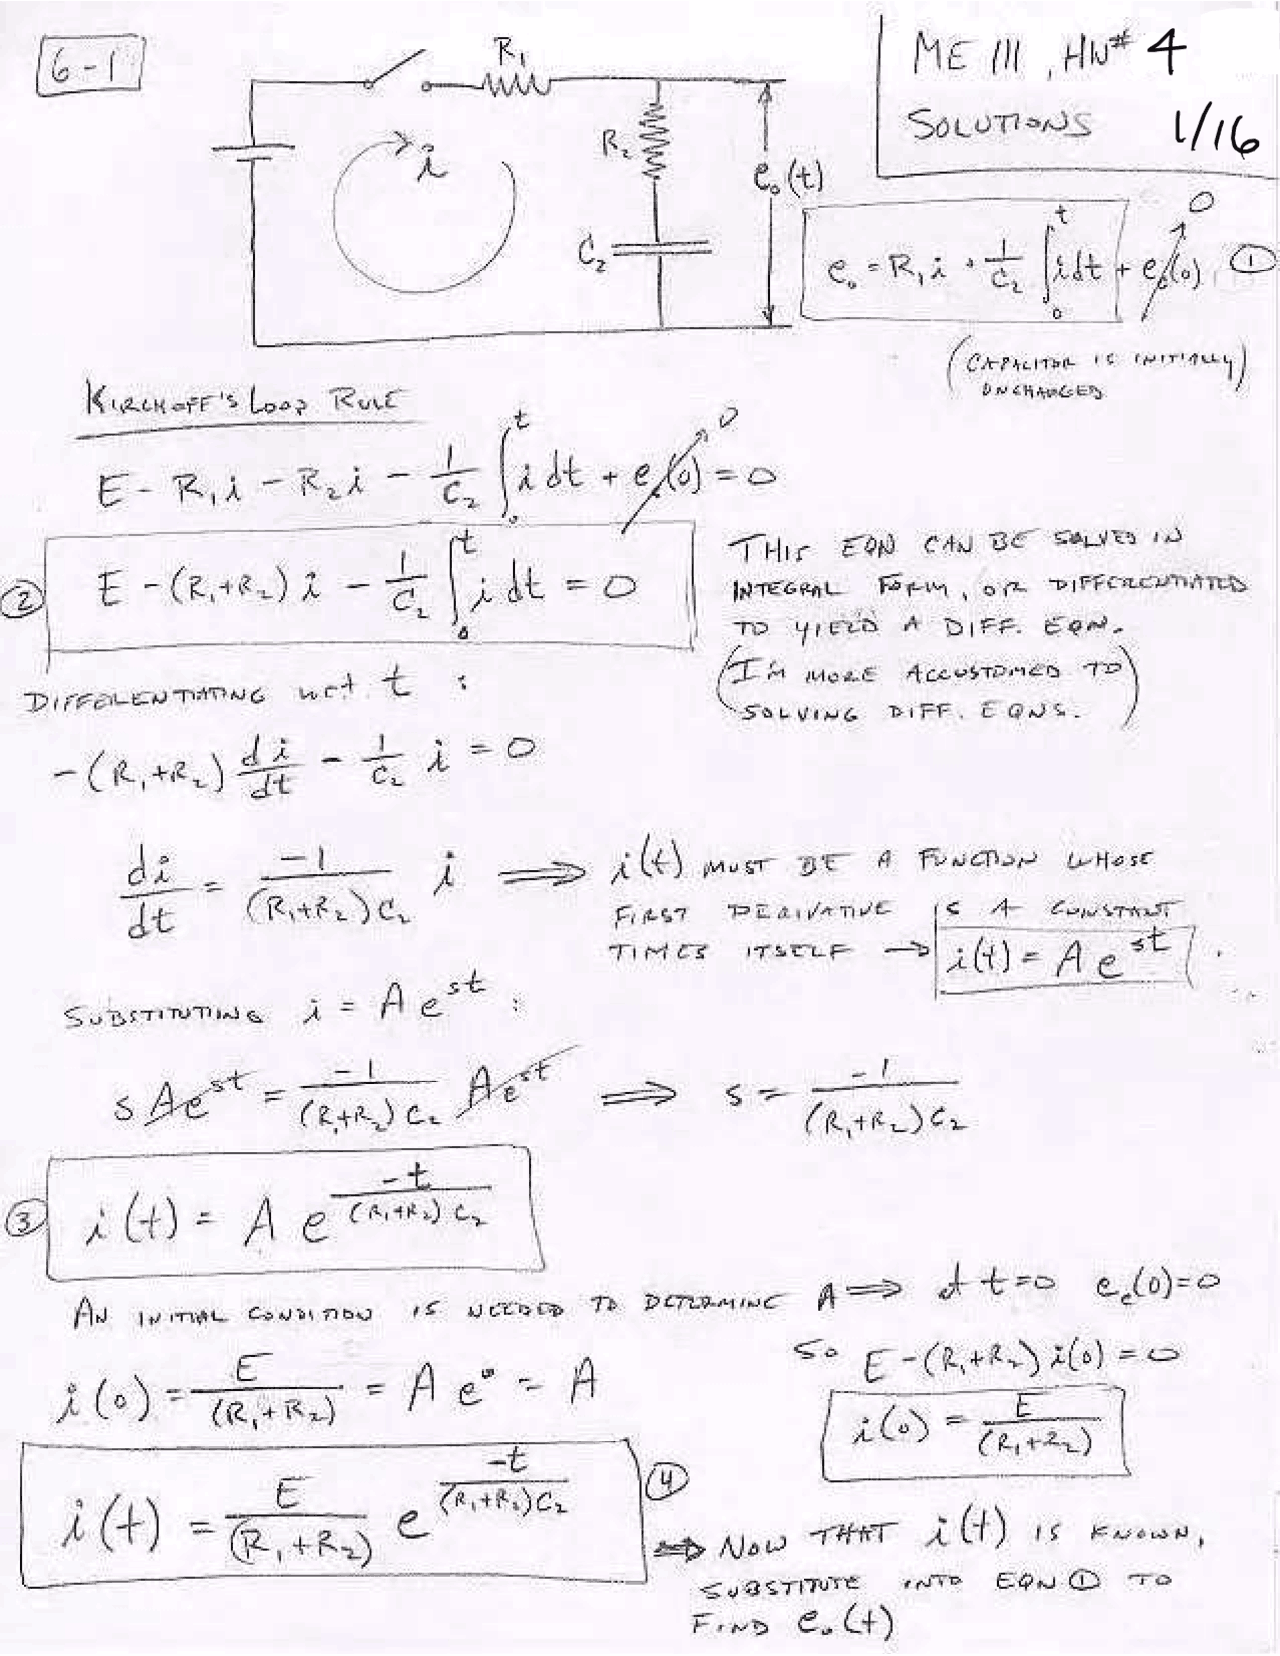 6-1
ME 111, HW# 4
SOLUTIONS 1/16
R₁
i
R₂
C₂
e₀(t)
e₀ = R₁i + 1/C₂ ∫₀ᵗ i dt + e_c(0) → 0 ①
(CAPACITOR IS INITIALLY
UNCHARGED)
KIRCHOFF'S LOOP RULE
E - R₁i - R₂i - 1/C₂ ∫₀ᵗ i dt + e_c(0) → 0 = 0
② E - (R₁+R₂) i - 1/C₂ ∫₀ᵗ i dt = 0
THIS EQN CAN BE SOLVED IN
INTEGRAL FORM, OR DIFFERENTIATED
TO YIELD A DIFF. EQN.
(I'M MORE ACCUSTOMED TO
SOLVING DIFF. EQNS.)
DIFFERENTIATING wrt t :
-(R₁+R₂) di/dt - 1/C₂ i = 0
di/dt = -1/((R₁+R₂)C₂) i ⟹ i(t) MUST BE A FUNCTION WHOSE
FIRST DERIVATIVE IS A CONSTANT
TIMES ITSELF → i(t) = A e^(st).
SUBSTITUTING i = A e^(st) :
s A e^(st) = -1/((R₁+R₂) C₂) A e^(st) ⟹ s = -1/((R₁+R₂) C₂)
③ i(t) = A e^(-t/((R₁+R₂) C₂))
AN INITIAL CONDITION IS NEEDED TO DETERMINE A ⟹ at t=0 e_c(0)=0
SO E - (R₁+R₂) i(0) = 0
i(0) = E/(R₁+R₂) = A e⁰ = A
i(0) = E/(R₁+R₂)
i(t) = E/(R₁+R₂) e^(-t/((R₁+R₂)C₂)) ④
⟹ NOW THAT i(t) IS KNOWN,
SUBSTITUTE INTO EQN ① TO
FIND e₀(t)